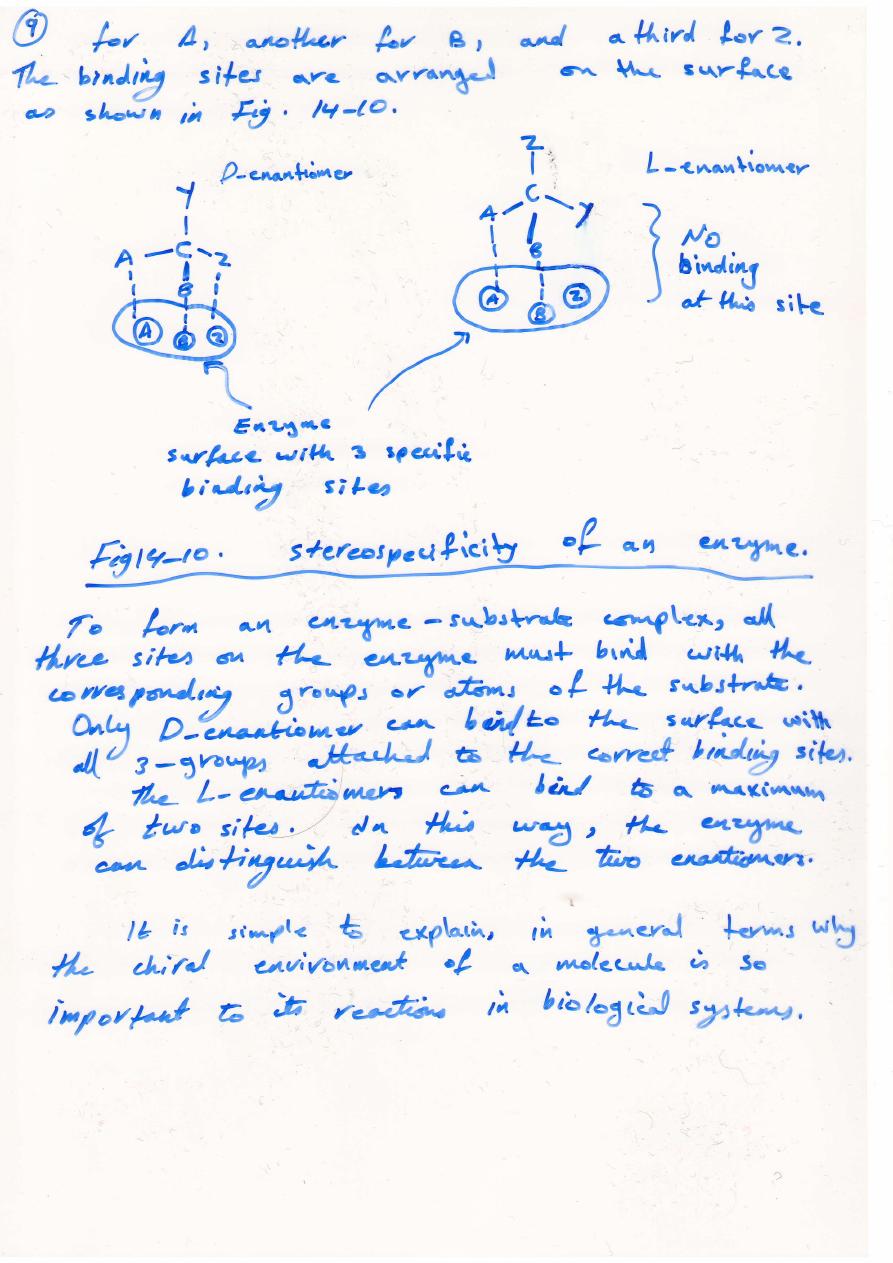 9
for A, another for B, and a third for Z.
The binding sites are arranged on the surface
as shown in Fig. 14-10.
D-enantiomer
Y
A C Z
B
A B Z
L-enantiomer
Z
C
A Y
B
A B Z
NO
binding
at this site
Enzyme
surface with 3 specific
binding sites
Fig 14-10. stereospecificity of an enzyme.
To form an enzyme-substrate complex, all
three sites on the enzyme must bind with the
corresponding groups or atoms of the substrate.
Only D-enantiomer can bind to the surface with
all 3-groups attached to the correct binding sites.
The L-enantiomers can bind to a maximum
of two sites. In this way, the enzyme
can distinguish between the two enantiomers.
It is simple to explain, in general terms why
the chiral environment of a molecule is so
important to its reactions in biological systems.